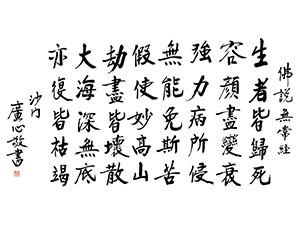 佛說無常經
生者皆歸死
容顏盡變衰
強力病所侵
無能免斯苦
假使妙高山
劫盡皆壞散
大海深無底
亦復皆枯竭
沙門
廣心敬書